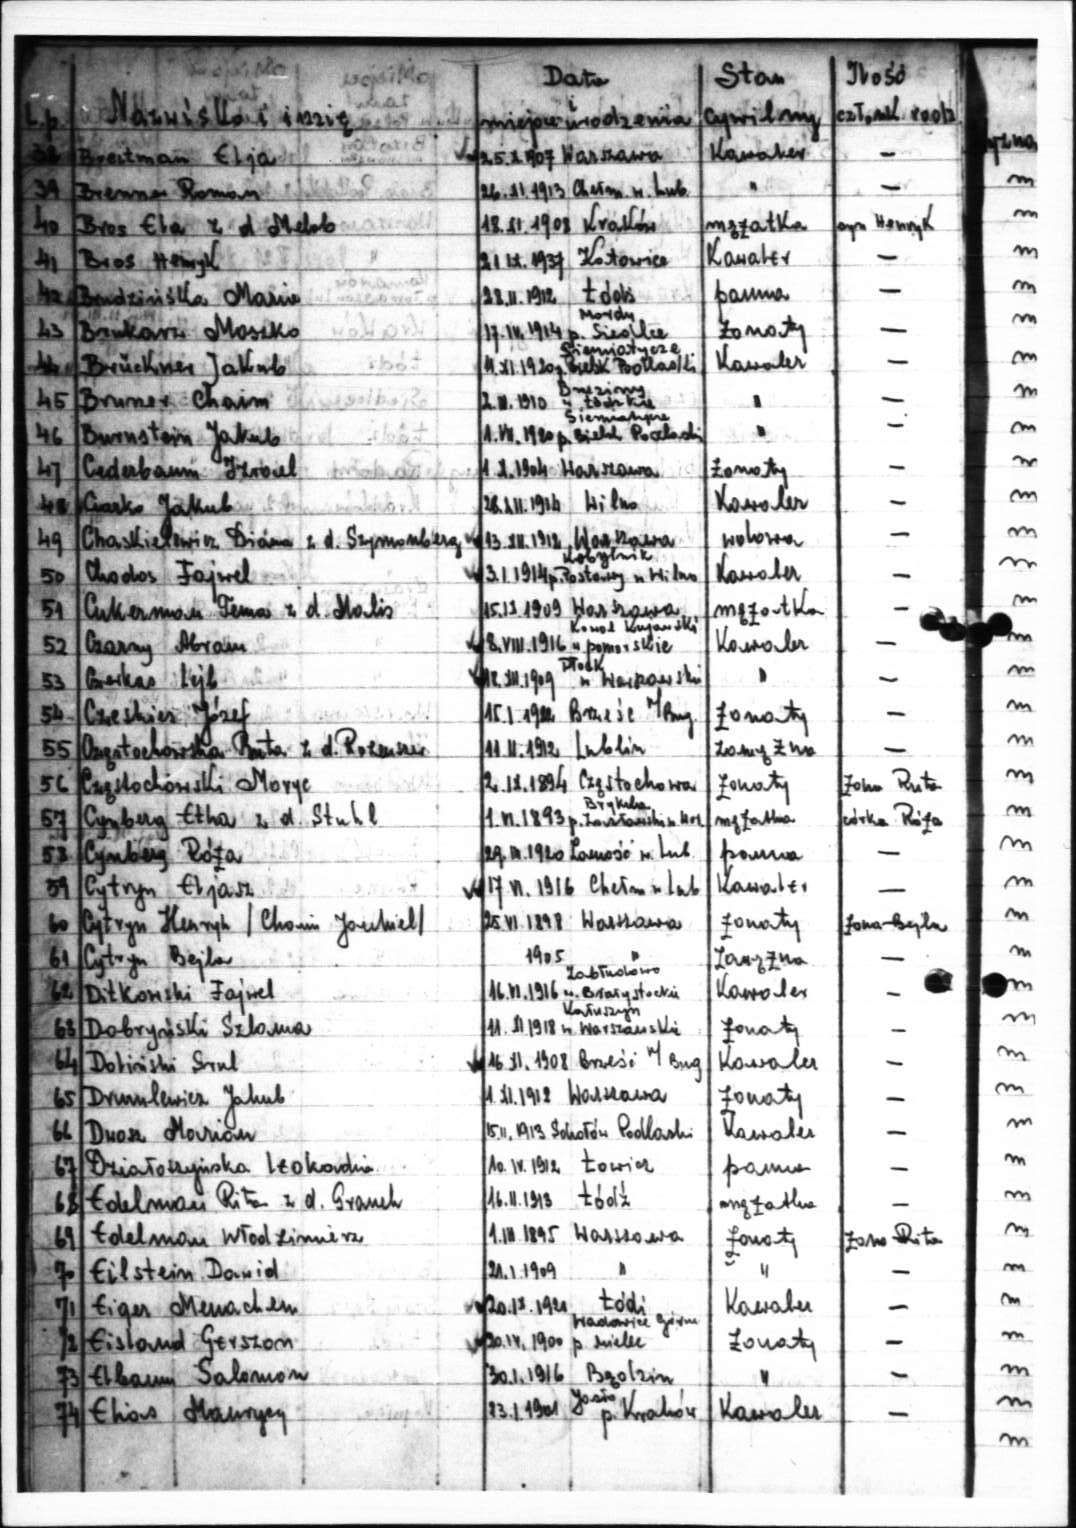 L.p. Nazwisko i imię Data i miejsce urodzenia Stan cywilny Ilość człónk. rodz.
38 Breitman Elja 25.X.1907 Warszawa Kawaler —
39 Brenner Roman 26.XI.1913 Chełm n. Lub. " —
40 Bros Ela z d. Melob 18.XI.1908 Kraków mężatka syn Henryk
41 Bros Henryk 21.IX.1937 Katowice Kawaler —
42 Brudzińska Maria 28.II.1912 Łódź panna —
43 Brukarz Moszko 17.IV.1914 Mordy p. Siedlce żonaty —
44 Brückner Jakub 11.XI.1920 Siemiatycze p. Bielsk Podlaski Kawaler —
45 Bruner Chaim 2.III.1910 Brzeziny n. Łódzkie " —
46 Burnstein Jakub 1.VII.1920 Siemiatycze p. Bielsk Podlaski " —
47 Cederbaum Izrael 1.X.1904 Warszawa żonaty —
48 Ciarko Jakub 28.XII.1914 Wilno Kawaler —
49 Chaskielewicz Diana z d. Szymonberg 13.XII.1912 Warszawa wdowa —
50 Chodos Fajwel 3.I.1914 Kobylnik p. Postawy n Wilno Kawaler —
51 Cukerman Fema z d. Malis 15.IX.1909 Warszawa mężatka —
52 Czarny Abram 8.VIII.1916 Kowal Kujawski n pomorskie Kawaler —
53 Czerkas Lejb 18.XII.1909 Płock n Warszawski " —
54 Czeskier Józef 15.I.1922 Brześć n/Bug żonaty —
55 Częstochowska Ruta z d. Rozenszer 11.II.1912 Lublin zamężna —
56 Częstochowski Moryc 2.IX.1894 Częstochowa żonaty żona Ruta
57 Cynberg Etka z d. Stuhl 1.VI.1893 mężatka córka Róża
58 Cynberg Róża 29.III.1920 Zamość n. Lub. panna —
59 Cytryn Eljasz 17.VI.1916 Chełm n Lub Kawaler —
60 Cytryn Henryk /Chaim Jechiel/ 25.VI.1898 Warszawa żonaty żona Bejla
61 Cytryn Bejla 1905 " zamężna —
62 Ditkowski Fajwel 16.VI.1916 Zabłudowo n. Białystockie Kawaler —
63 Dobryński Szlama 11.XI.1918 Kałuszyn n Warszawskie żonaty —
64 Doliński Srul 16.XI.1908 Brześć n/Bug Kawaler —
65 Drumlewicz Jakub 1.XI.1912 Warszawa żonaty —
66 Duosz Marian 15.II.1913 Sokołów Podlaski Kawaler —
67 Działoszyńska Leokadia 10.IV.1912 Łowicz panna —
68 Edelman Rita z d. Granek 16.II.1913 Łódź mężatka —
69 Edelman Włodzimierz 1.III.1895 Warszawa żonaty żona Rita
70 Eilstein Dawid 21.I.1909 " " —
71 Eiger Menachem 20.IX.1921 Łódź Kawaler —
72 Eisland Gerszon 20.IV.1900 Wadowice Górne p. Mielec żonaty —
73 Elbaum Salomon 30.I.1916 Będzin " —
74 Elias Maurycy 23.I.1901 Jasło p. Kraków Kawaler —